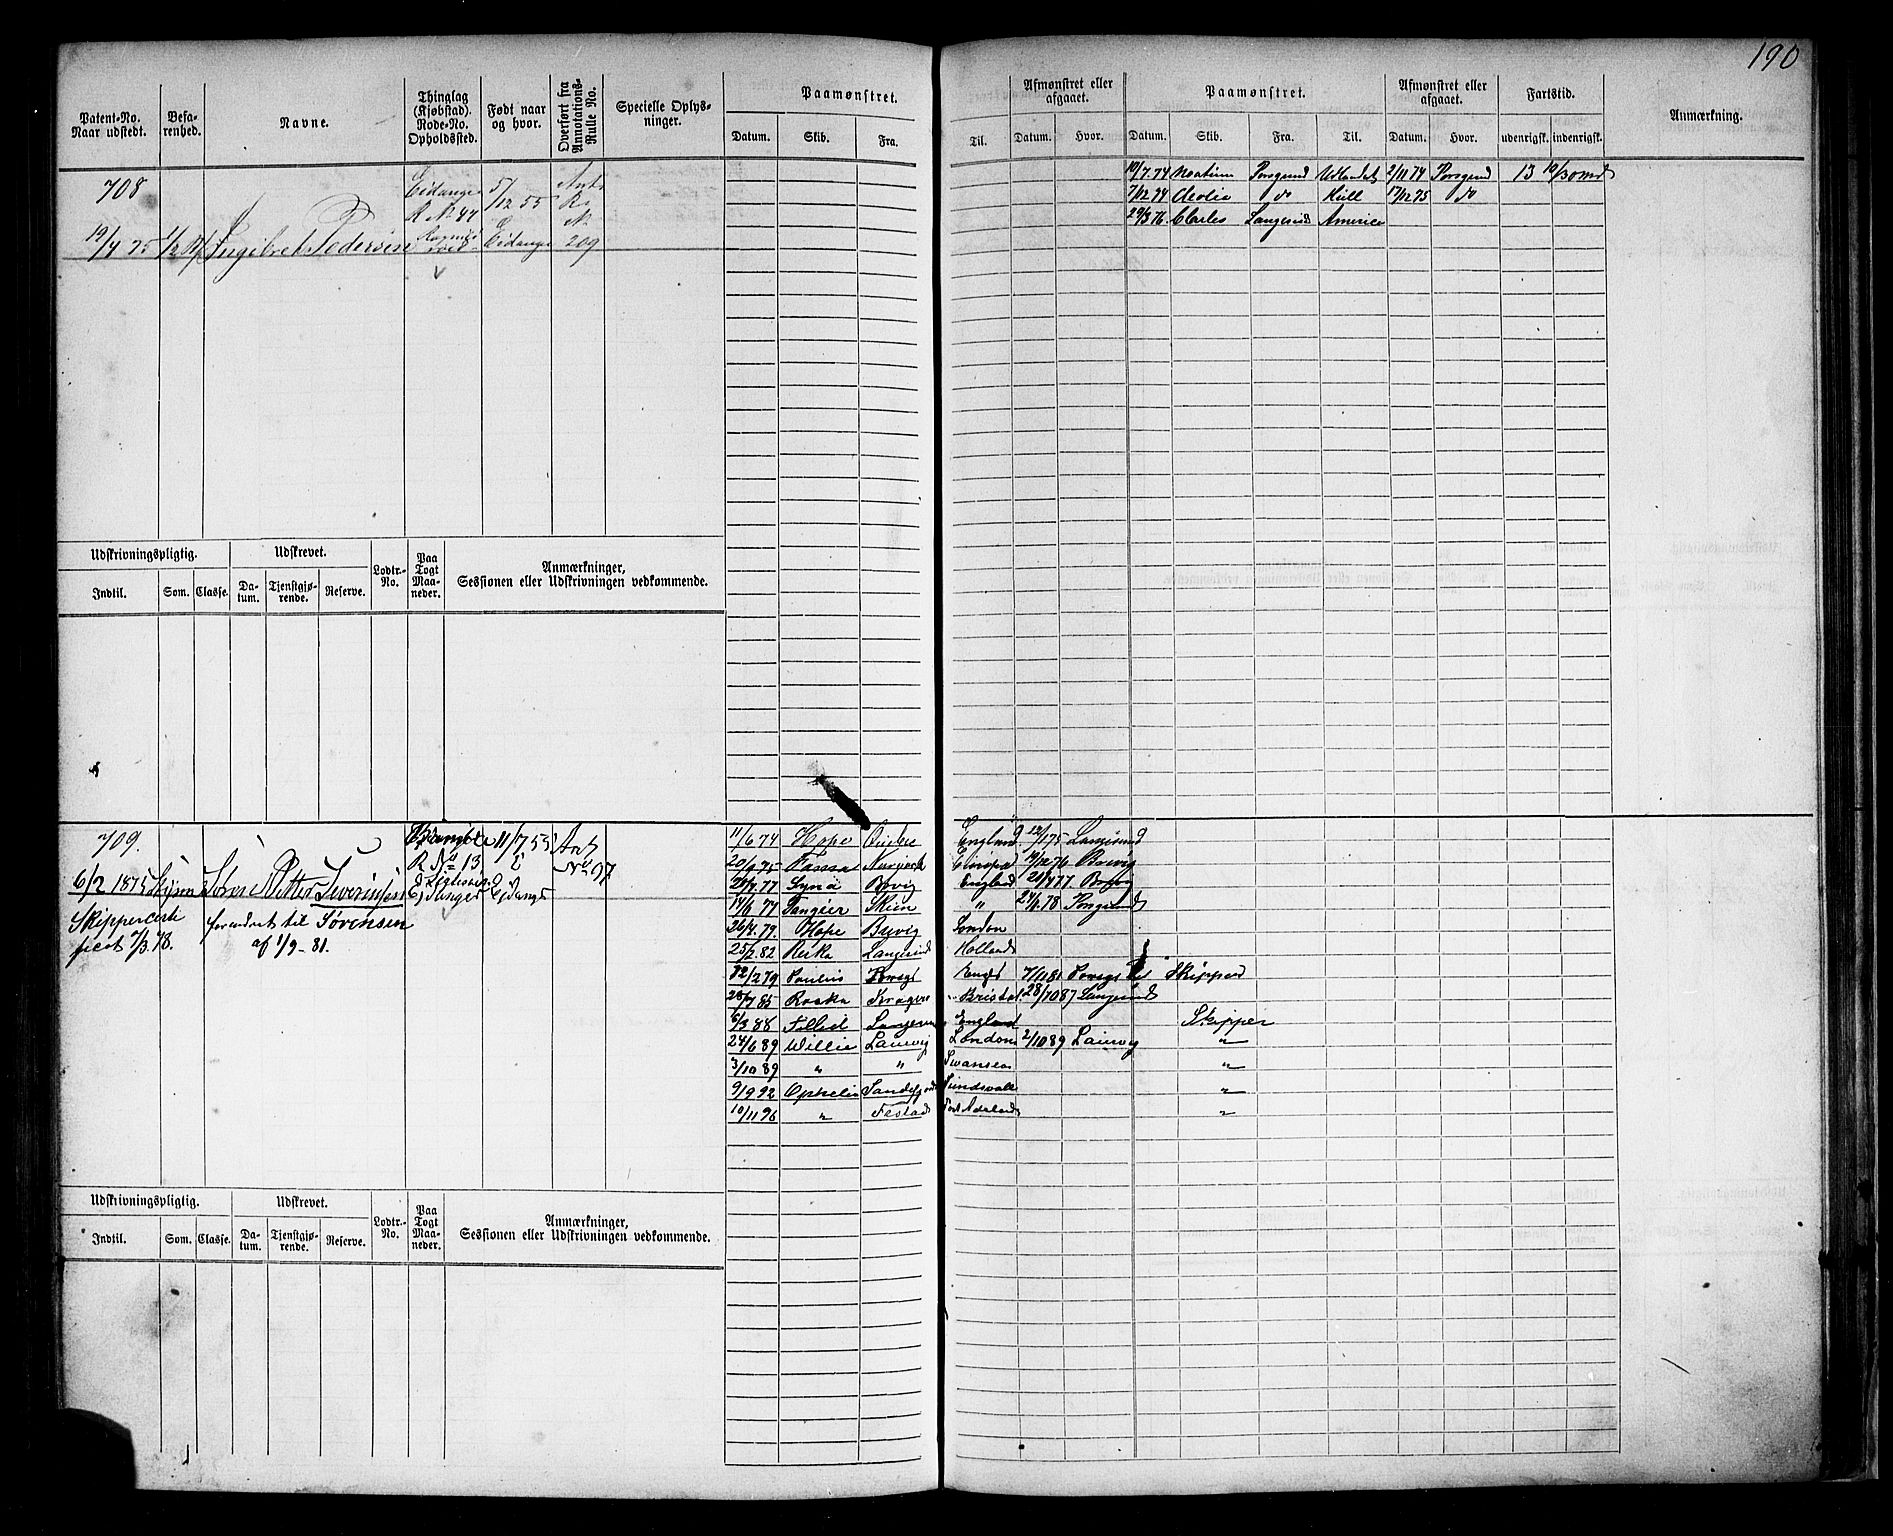 190
Patent-No. Naar udstedt.
Befarenhed.
Navne.
Thinglag (Kjøbstad). Rode-No. Opholdssted.
Født naar og hvor.
Overført fra Annotations-Rulle No.
Specielle Oplysninger.
Paamønstret.
Datum. Skib. Fra.
Til.
Afmønstret eller afgaaet.
Datum. Hvor.
Paamønstret.
Datum. Skib. Fra. Til.
Afmønstret eller afgaaet.
Datum. Hvor.
Fartstid.
udenrigsk. indenrigsk.
Anmærkning.
708
19/4 75
Ingebret Pedersen
Eidanger
R No 47
5/12 55
Eidanger
Ant
No
209
19/7.74 Porsgrund Udlandet 2/11 74 Porsgrund 13
7/12 74 Aeolie do Hull 17/12 75 do
29/3 76 Charles Langesund America
Udskrivningspligtig.
Indtil. Som. Classe.
Udskrevet.
Datum. Tjenstgjørende. Reserve.
Lodtr.-No.
Paa Togt Maaneder.
Anmærkninger, Sessionen eller Udskrivningen vedkommende.
709.
6/2 1875
Skippercertificat 7/3.78.
Søren Petter Severinsen
forandret til Sørensen
af 1/9-81.
R No 13
Ejdanger
11/7 55
Ejdanger
Ant
No 97
11/6 74 Hope England 12/1 75 Langesund
20/9 75 Europa 19/12 76 Brevig
Brevig England 21/4 77 Brevig
19/6 77 Tangier Skien " 24/6.78 Porsgrund
26/4.79. Hope Brevig London
25/2.82 Langesund Holland
12/2 79 Paulus Porsgr Engl 7/11 81 Porsgr til Skipper
Kragerø Bristol 28/10 87 Langesund
6/3 88 Langesund England Skipper
24/6 89 Willie Laurvig London 2/10 89 Laurvig "
3/10 89 " " Swansea "
9/9 92 Ophelia Sandefjord Sundsvall "
10/11 96 " Port Adelaide "
Udskrivningspligtig.
Indtil. Som. Classe.
Udskrevet.
Datum. Tjenstgjørende. Reserve.
Lodtr.-No.
Paa Togt Maaneder.
Anmærkninger, Sessionen eller Udskrivningen vedkommende.